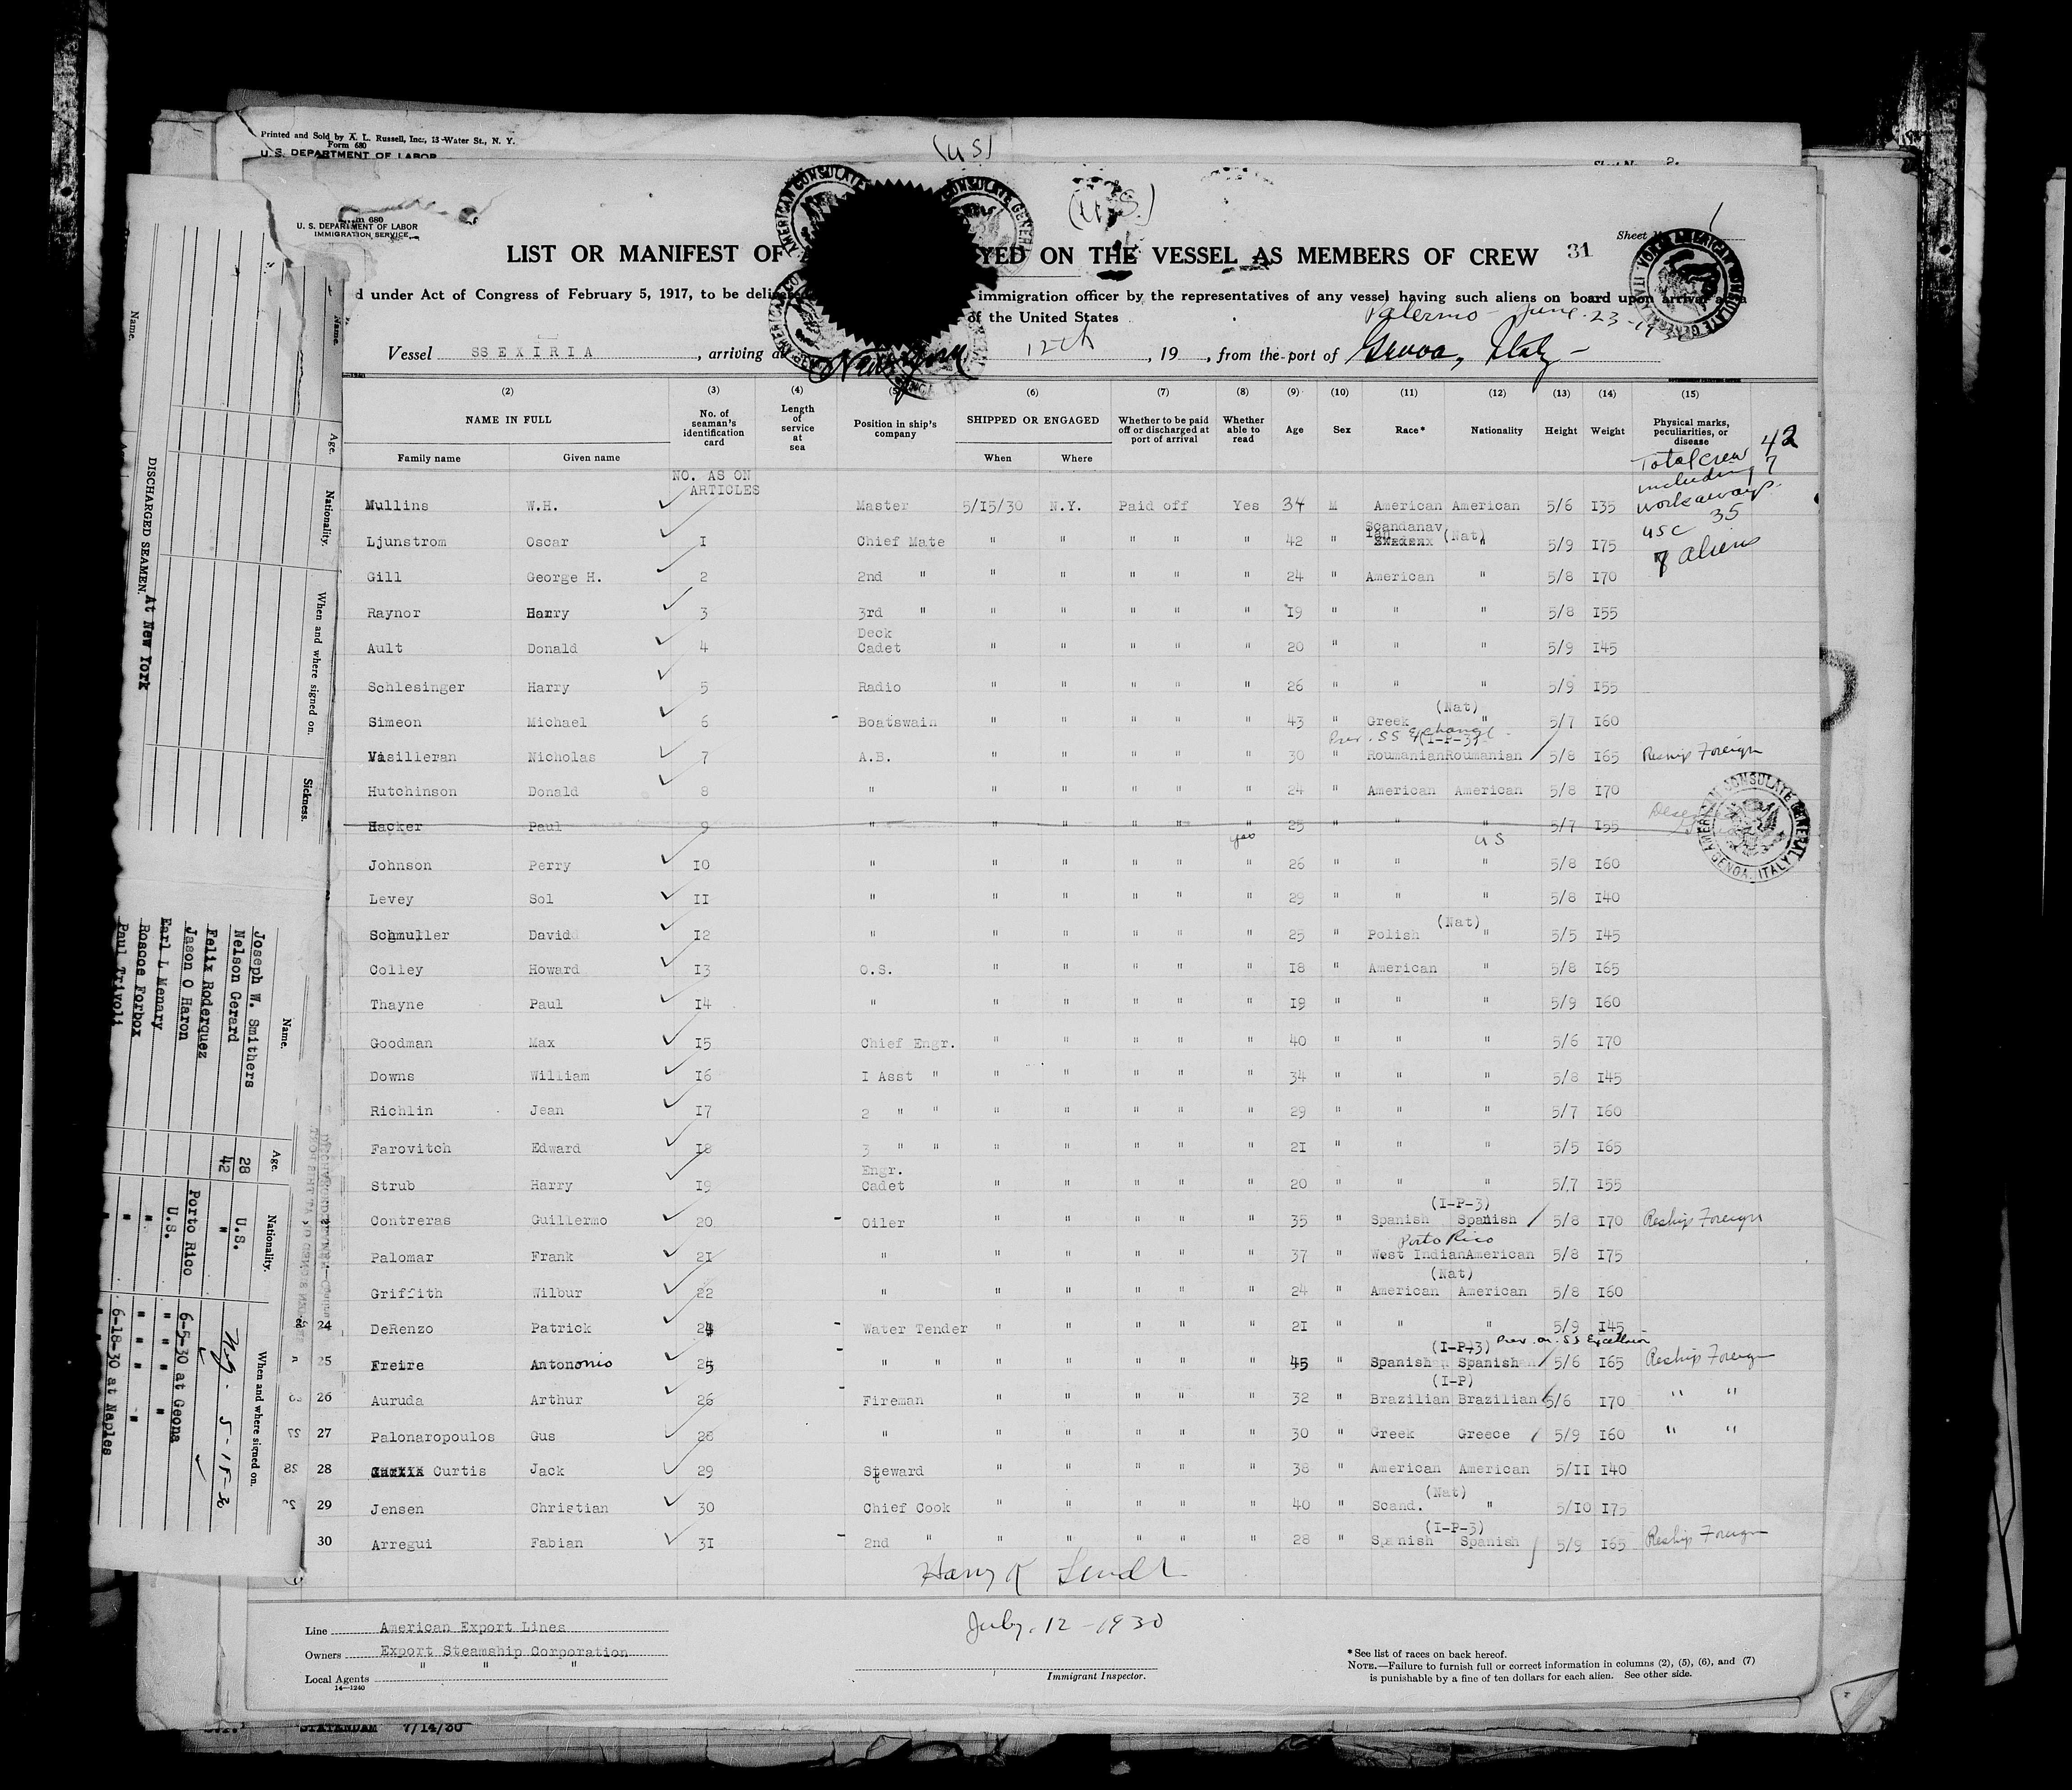 Printed and Sold by A. L. Russell, Inc., 13 Water St., N. Y.
Form 680
U. S. DEPARTMENT OF LABOR
(US)
2
(U.S.)
680
U. S. DEPARTMENT OF LABOR
IMMIGRATION SERVICE
Sheet 1
LIST OR MANIFEST OF YED ON THE VESSEL AS MEMBERS OF CREW 31
d under Act of Congress of February 5, 1917, to be immigration officer by the representatives of any vessel having such aliens on board upon arrival
of the United States
Palermo - June - 23 -
Vessel SS EXIRIA , arriving at New York 12th , 19 , from the port of Genoa, Italy -
(2) (3) (4) (6) (7) (8) (9) (10) (11) (12) (13) (14) (15)
NAME IN FULL No. of seaman's identification card Length of service at sea Position in ship's company SHIPPED OR ENGAGED Whether to be paid off or discharged at port of arrival Whether able to read Age Sex Race* Nationality Height Weight Physical marks, peculiarities, or disease
Family name Given name When Where
NO. AS ON ARTICLES
Total crew 42
including 7
workaways.
USC 35
7 aliens
Mullins W.H. Master 5/15/30 N.Y. Paid off Yes 34 M American American 5/6 135
Ljunstrom Oscar 1 Chief Mate " " " " " 42 " Scandanavian (Nat) " 5/9 175
Gill George H. 2 2nd " " " " " " 24 " American " 5/8 170
Raynor Harry 3 3rd " " " " " " 19 " " " 5/8 155
Ault Donald 4 Deck Cadet " " " " " 20 " " " 5/9 145
Schlesinger Harry 5 Radio " " " " " 26 " " " 5/9 155
Simeon Michael 6 Boatswain " " " " " 43 " Greek (Nat) " 5/7 160
Prev. SS Exchange (I-P-3)
Vasilleran Nicholas 7 A.B. " " " " " 30 " Roumanian Roumanian 5/8 165 Reship Foreign
Hutchinson Donald 8 " " " " " " 24 " American American 5/8 170
Hacker Paul 9 " " " " " " 25 " " " 5/7 155
yes US
Johnson Perry 10 " " " " " " 26 " " " 5/8 160
Levey Sol 11 " " " " " " 29 " " " 5/8 140
Schmuller David 12 " " " " " " 25 " Polish (Nat) " 5/5 145
Colley Howard 13 O.S. " " " " " 18 " American " 5/8 165
Thayne Paul 14 " " " " " " 19 " " " 5/9 160
Goodman Max 15 Chief Engr. " " " " " 40 " " " 5/6 170
Downs William 16 I Asst " " " " " " 34 " " " 5/8 145
Richlin Jean 17 2 " " " " " " " 29 " " " 5/7 160
Farovitch Edward 18 3 " " " " " " " 21 " " " 5/5 165
Strub Harry 19 Engr. Cadet " " " " " 20 " " " 5/7 155
(I-P-3)
Contreras Guillermo 20 Oiler " " " " " 35 " Spanish Spanish 5/8 170 Reship Foreign
Porto Rico
Palomar Frank 21 " " " " " " 37 " West Indian American 5/8 175
(Nat)
Griffith Wilbur 22 " " " " " " 24 " American American 5/8 160
24 DeRenzo Patrick 24 Water Tender " " " " " 21 " " " 5/9 145
(I-P-3) Prev. on SS Excelsior
25 Freire Antononio 25 " " " " " " " 45 " Spanish Spanish 5/6 165 Reship Foreign
(I-P)
26 Auruda Arthur 26 Fireman " " " " " 32 " Brazilian Brazilian 5/6 170 " "
27 Palonaropoulos Gus 28 " " " " " " 30 " Greek Greece 5/9 160 " "
28 Curtis Jack 29 Steward " " " " " 38 " American American 5/11 140
29 Jensen Christian 30 Chief Cook " " " " " 40 " Scand. (Nat) " 5/10 175
(I-P-3)
30 Arregui Fabian 31 2nd " " " " " " 28 " Spanish Spanish 5/9 165 Reship Foreign
July. 12 - 1930
Line American Export Lines
Owners Export Steamship Corporation
Local Agents " " "
14—1240
Immigrant Inspector.
* See list of races on back hereof.
NOTE.—Failure to furnish full or correct information in columns (2), (5), (6), and (7)
is punishable by a fine of ten dollars for each alien. See other side.
AMERICAN CONSULATE GENERAL
GENOA, ITALY
Name. Age. Nationality. When and where signed on. Sickness.
DISCHARGED SEAMEN. At New York
Name.
Name. Age. Nationality. When and where signed on.
Joseph W. Smithers 28 U.S. N.Y. 5-15-30
Nelson Gerard 42 "
Felix Roderquez Porto Rico 6-5-30 at Geona
Jason O Haron U.S. " " "
Earl L Menary " " " "
Roscoe Forbox " " " "
Paul Trivoli " 6-18-30 at Naples
STATENDAM 7/14/30